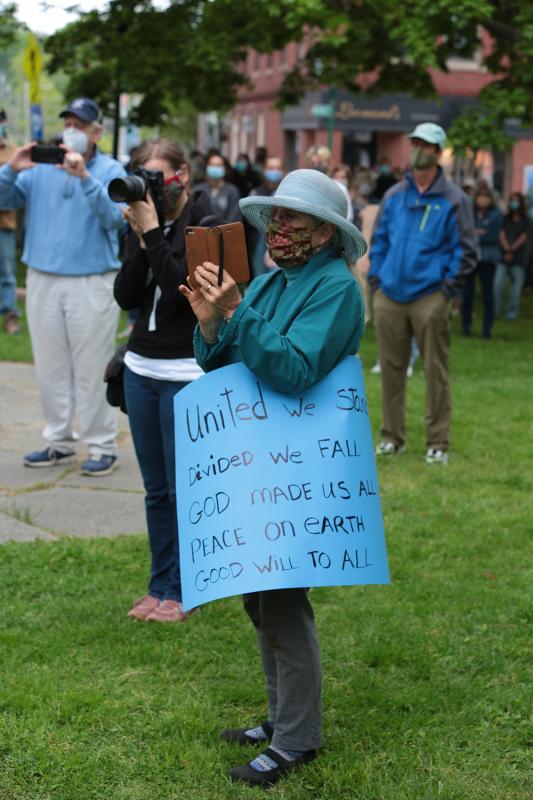 United we Stan
Divided we FALL
GOD MADE US ALL
PEACE on eARTH
GOOD WiLL TO ALL